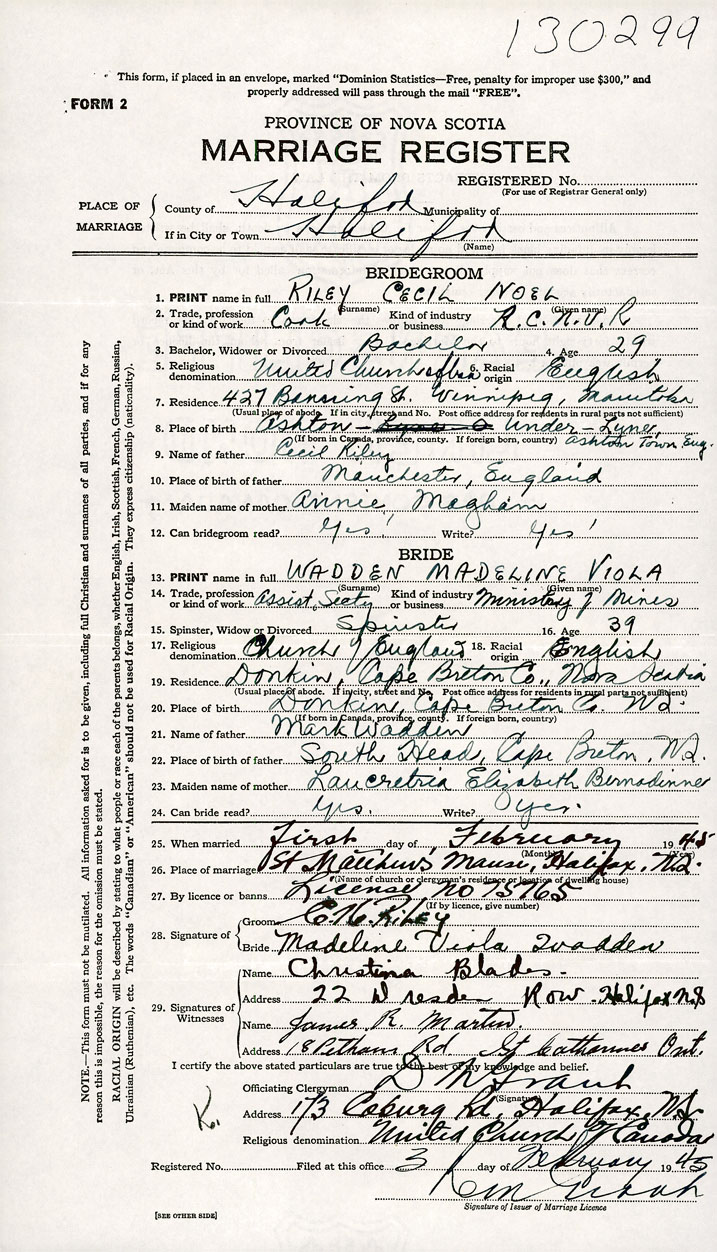 130299
This form, if placed in an envelope, marked "Dominion Statistics—Free, penalty for improper use $300," and
properly addressed will pass through the mail "FREE".
FORM 2
PROVINCE OF NOVA SCOTIA
MARRIAGE REGISTER
REGISTERED No.
(For use of Registrar General only)
PLACE OF MARRIAGE
County of Halifax Municipality of
If in City or Town Halifax
(Name)
BRIDEGROOM
1. PRINT name in full RILEY CECIL NOEL
(Surname) (Given name)
2. Trade, profession or kind of work Cook Kind of industry or business R.C.N.V.R
3. Bachelor, Widower or Divorced Bachelor 4. Age 29
5. Religious denomination United Church of 6. Racial origin English
7. Residence 427 Banning St. Winnipeg, Manitoba
(Usual place of abode. If in city, street and No. Post office address for residents in rural parts not sufficient)
8. Place of birth Ashton - Under - Lyne,
(If born in Canada, province, county. If foreign born, country) Ashton Town Eng.
9. Name of father Cecil Riley
10. Place of birth of father Manchester, England
11. Maiden name of mother Annie Magham
12. Can bridegroom read? Yes! Write? Yes!
BRIDE
13. PRINT name in full WADDEN MADELINE VIOLA
(Surname) (Given name)
14. Trade, profession or kind of work Assist. Secty Kind of industry or business Ministry of Mines
15. Spinster, Widow or Divorced Spinster 16. Age 39
17. Religious denomination Church of England 18. Racial origin English
19. Residence Donkin, Cape Breton Co., Nova Scotia
(Usual place of abode. If in city, street and No. Post office address for residents in rural parts not sufficient)
20. Place of birth Donkin, Cape Breton Co. N.S.
(If born in Canada, province, county. If foreign born, country)
21. Name of father Mark Wadden
22. Place of birth of father South Head, Cape Breton, N.S.
23. Maiden name of mother Laucretria Elizabeth
24. Can bride read? Yes. Write? Yes.
25. When married first day of February 1945
(Month) (Year)
26. Place of marriage St Matthew's Manse, Halifax, N.S.
(Name of church or clergyman's residence or location of dwelling house)
27. By licence or banns License no 75765
(If by licence, give number)
28. Signature of
Groom C.N. Riley
Bride Madeline Viola Wadden
29. Signatures of Witnesses
Name Christina Blades
Address 22 Dresden Row - Halifax N.S
Name James R. Martin.
Address 18 Pelham Rd St Catharines Ont.
I certify the above stated particulars are true to the best of my knowledge and belief.
Officiating Clergyman D M Grant
(Signature)
Address 173 Coburg Rd, Halifax, N.S.
Religious denomination United Church of Canada
K.
Registered No. Filed at this office 3 day of February 1945
Signature of Issuer of Marriage Licence
[SEE OTHER SIDE]
NOTE.—This form must not be mutilated. All information asked for is to be given, including full Christian and surnames of all parties, and if for any
reason this is impossible, the reason for the omission must be stated.
RACIAL ORIGIN will be described by stating to what people or race each of the parents belongs, whether English, Irish, Scottish, French, German, Russian,
Ukrainian (Ruthenian), etc. The words "Canadian" or "American" should not be used for Racial Origin. They express citizenship (nationality).